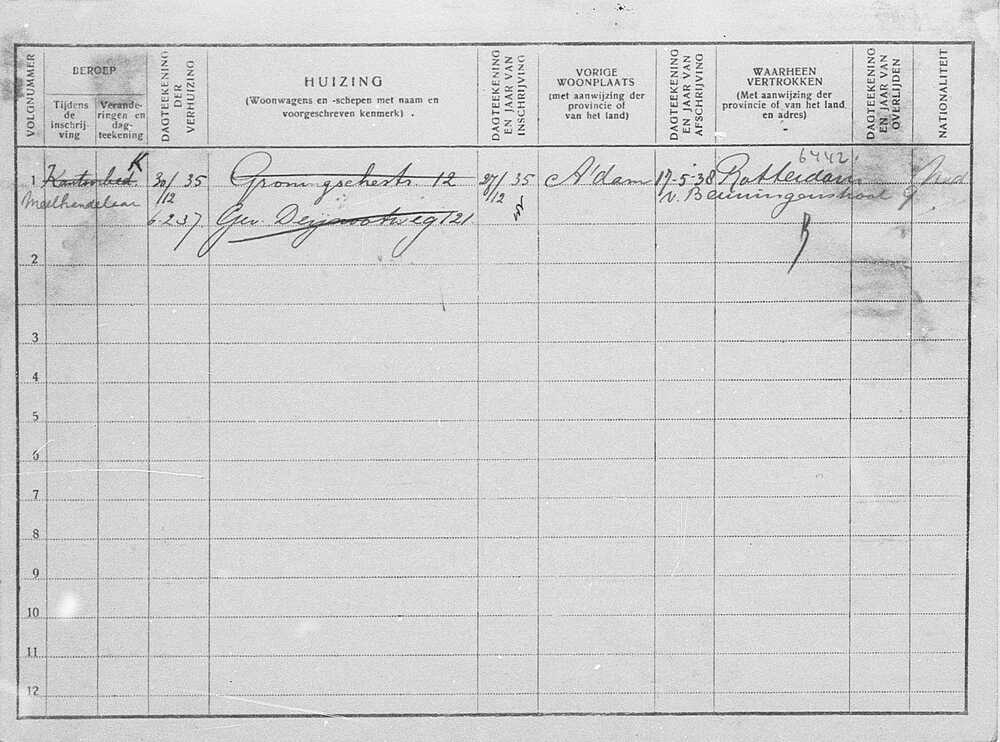 VOLGNUMMER
BEROEP
Tijdens de inschrij-ving
Verande-ringen en dag-teekening
DAGTEEKENING DER VERHUIZING
HUIZING
(Woonwagens en -schepen met naam en
voorgeschreven kenmerk) .
DAGTEEKENING EN JAAR VAN INSCHRIJVING
VORIGE
WOONPLAATS
(met aanwijzing der
provincie of
van het land)
DAGTEEKENING EN JAAR VAN AFSCHRIJVING
WAARHEEN
VERTROKKEN
(Met aanwijzing der
provincie of van het land
en adres)
DAGTEEKENING EN JAAR VAN OVERLIJDEN
NATIONALITEIT
6442.
K
1 Kantoorbed. 30/12 35 Groningschestr. 12 27/12 35 A'dam 17-5-38 Rotterdam
Meelhandelaar v. Beuningenstraat 9
6-2-37. Gev. Deijnootweg 121
2
3
4
5
6
7
8
9
10
11
12